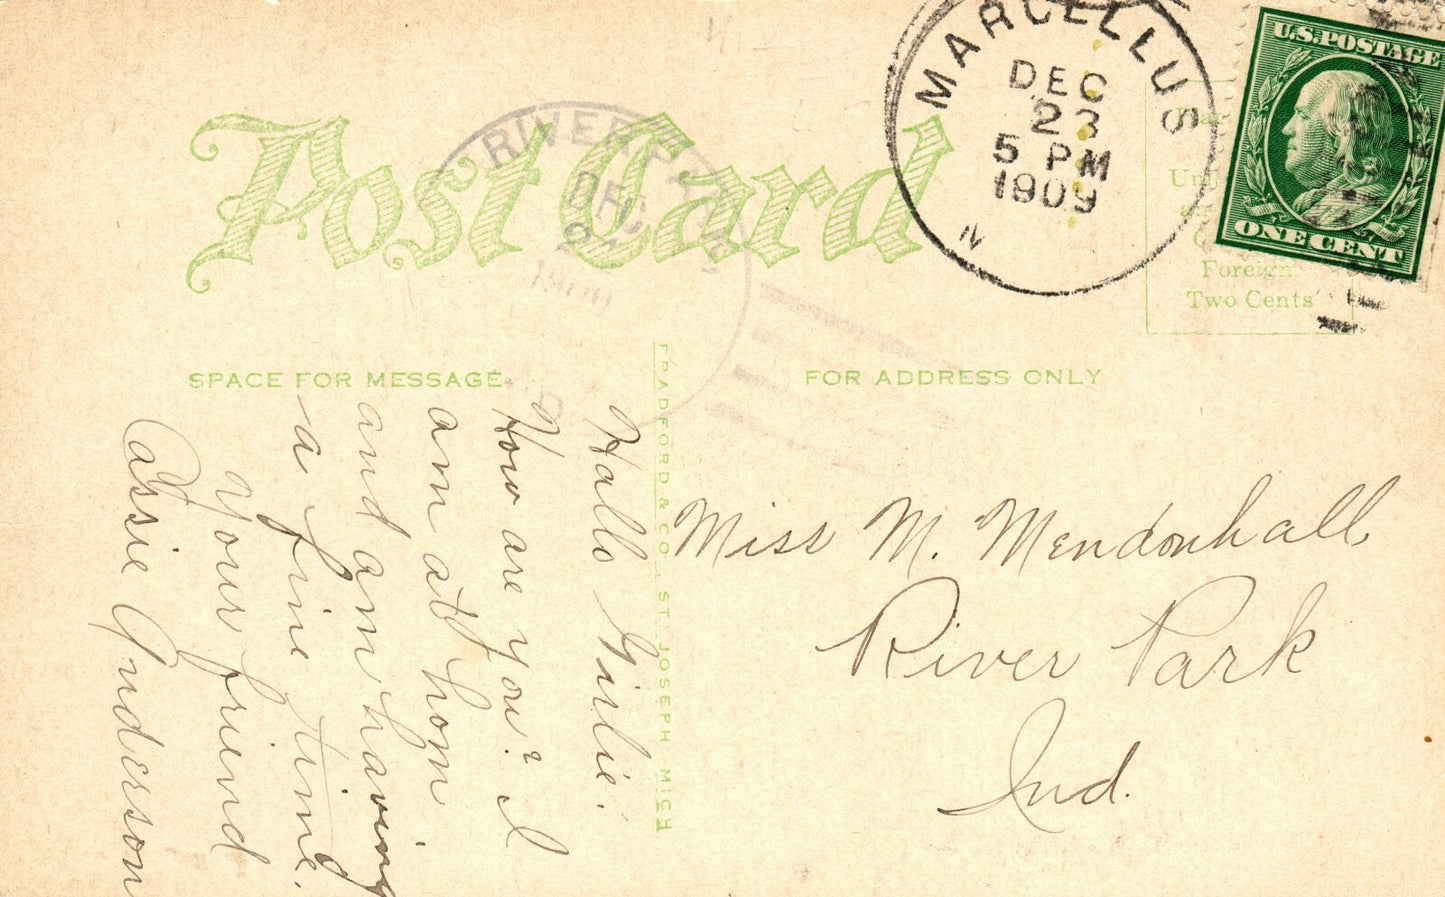 Post Card
MARCELLUS
DEC
23
5 PM
1909
U.S. POSTAGE
ONE CENT
RIVER PARK
DEC
Foreign
Two Cents
SPACE FOR MESSAGE
FOR ADDRESS ONLY
BRADFORD & CO., ST. JOSEPH MICH
Hallo Girlie.
How are you? I
am at hom
and am having
a fine time.
Your friend
Cassie Anderson
Miss M. Mendonhall
River Park
Ind.